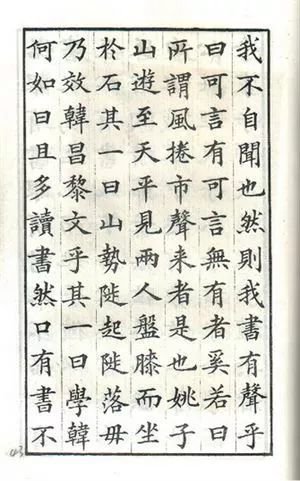 我不自聞也然則我書有聲乎
曰可言有可言無有者奚若曰
所謂風捲市聲来者是也姚子
山遊至天平見兩人盤膝而坐
於石其一曰山勢陡起陡落毋
乃效韓昌黎文乎其一曰學韓
何如曰且多讀書然口有書不
43